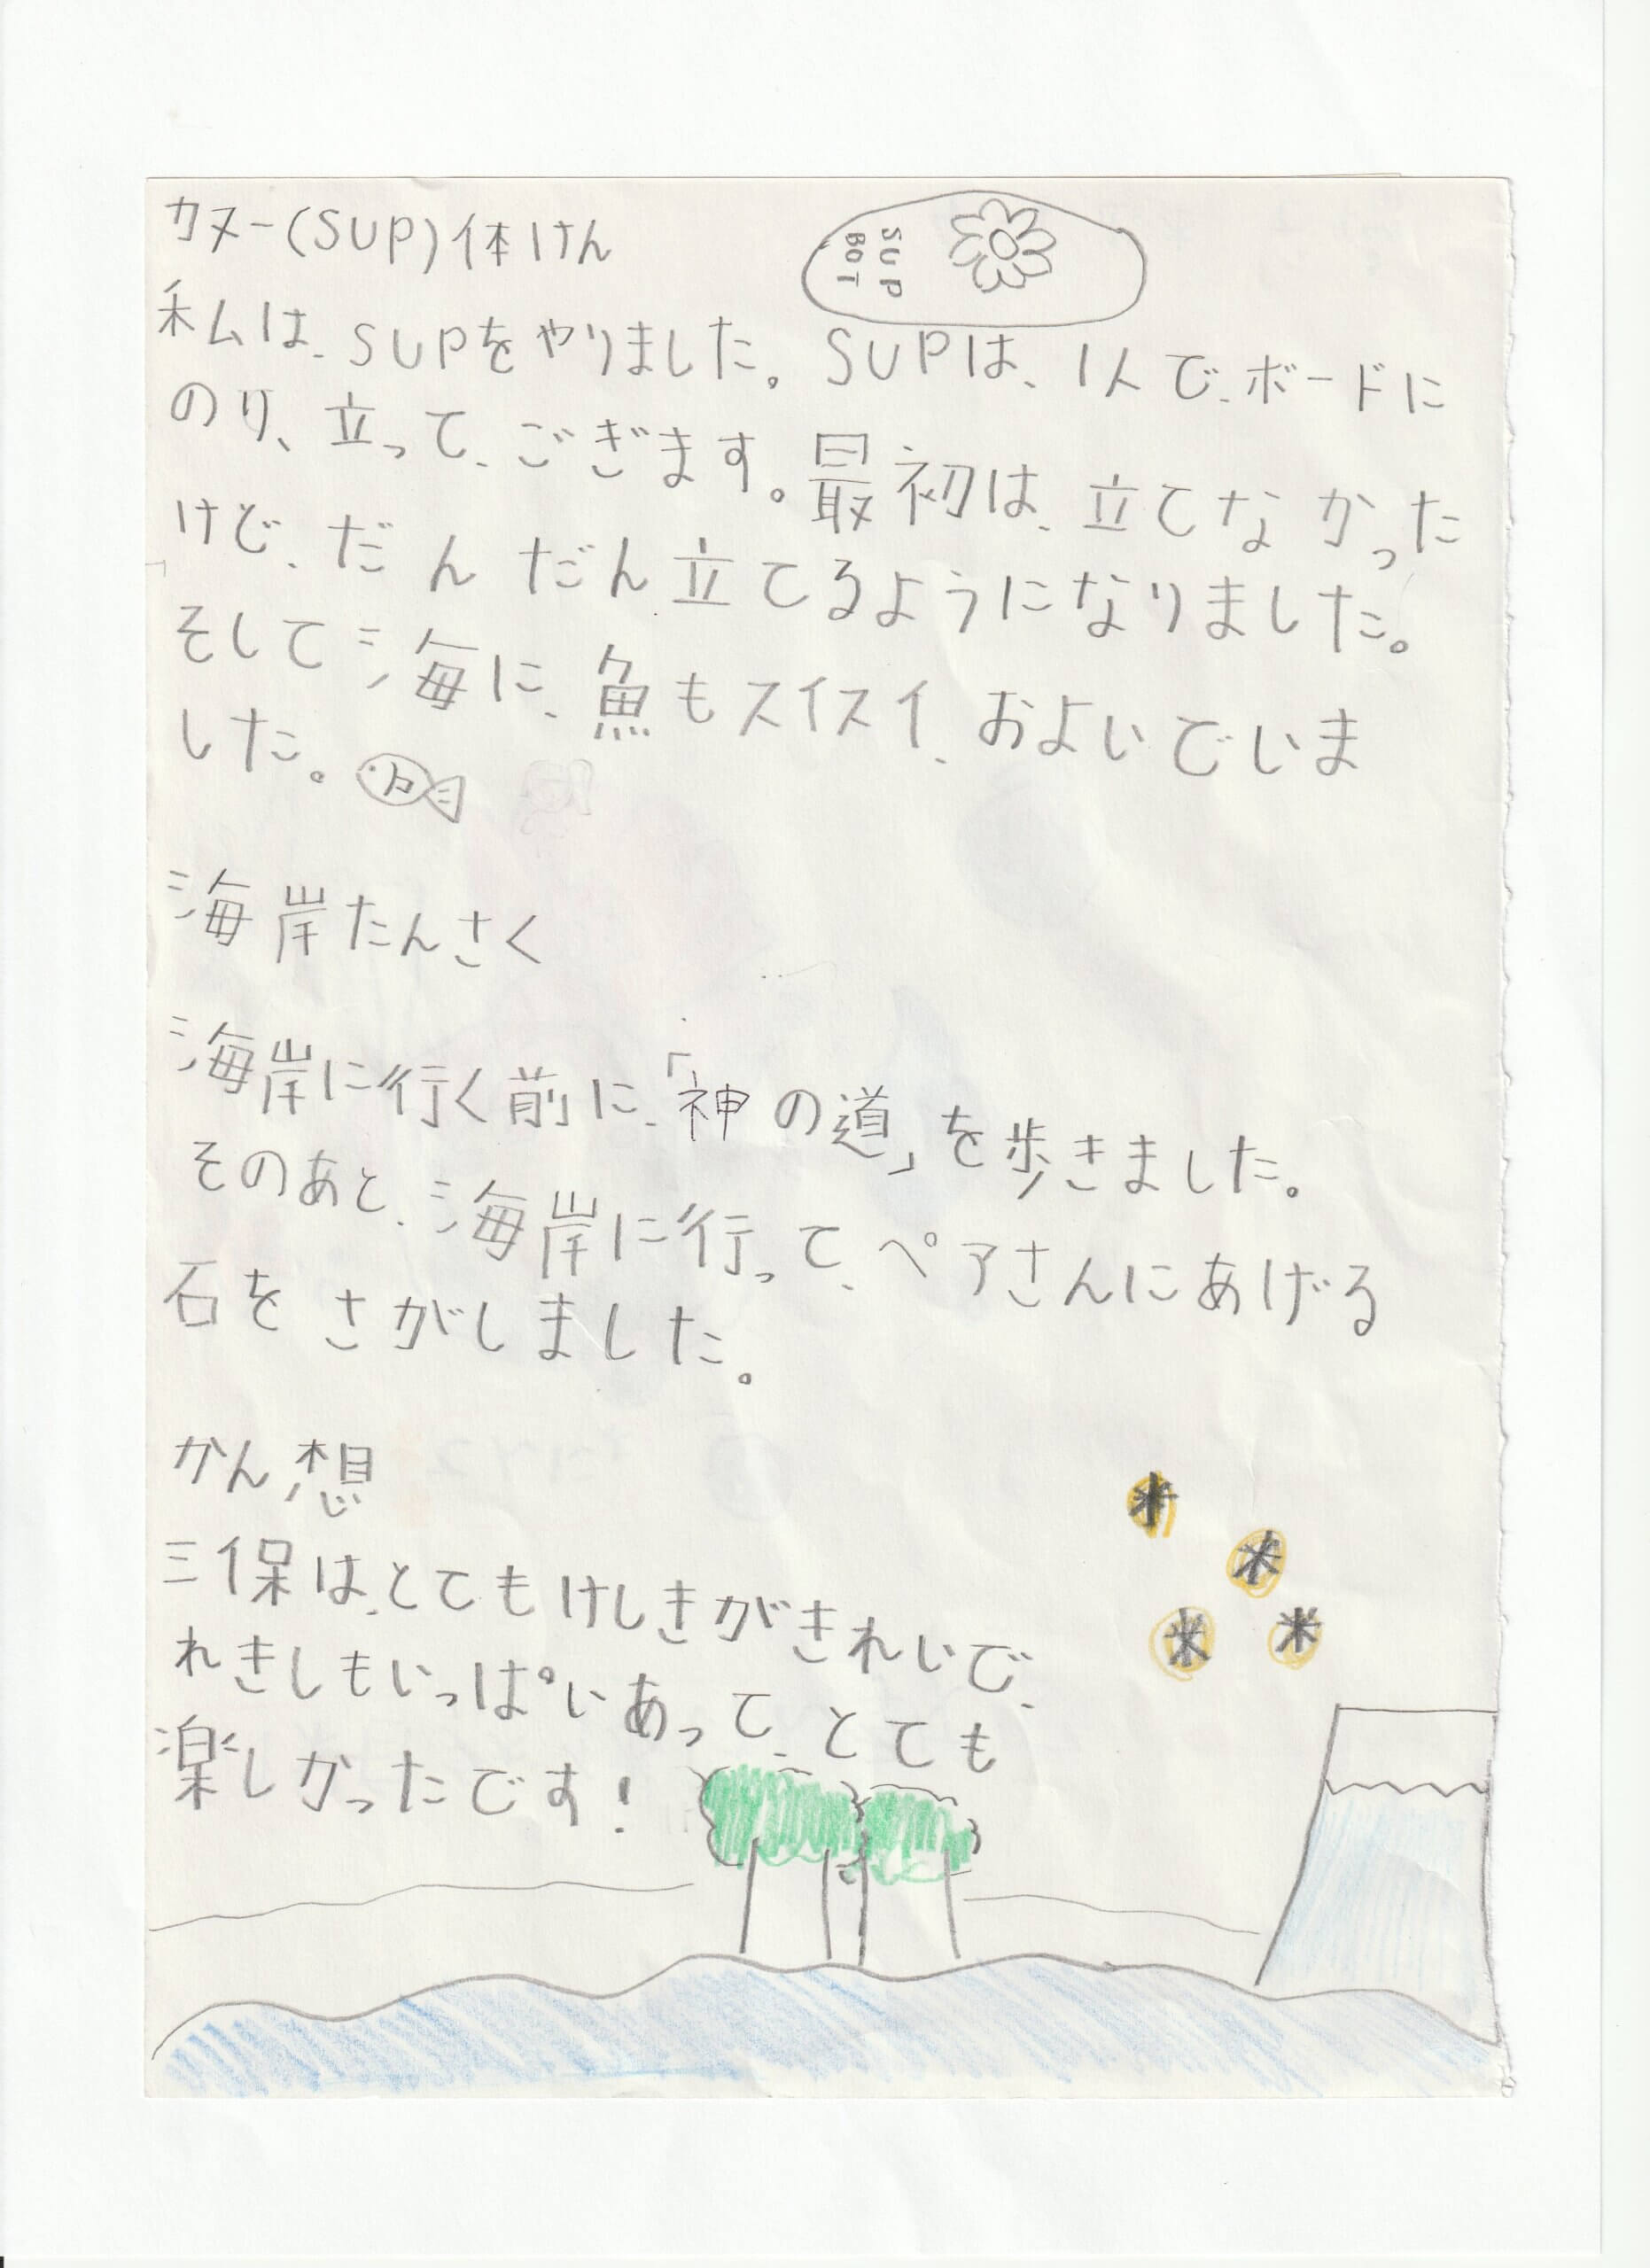 カヌー(SUP)体けん
SUP
BOT
私は、SUPをやりました。SUPは、1人で、ボードに
のり、立って、ごぎます。最初は、立てなかった
けど、だんだん立てるようになりました。
そして海に、魚もスイスイ、およいでいま
した。
海岸たんさく
海岸に行く前に、「神の道」を歩きました。
そのあと、海岸に行って、ペアさんにあげる
石をさがしました。
かん想
三保は、とてもけしきがきれいで、
れきしもいっぱいあって、とても
楽しかったです!